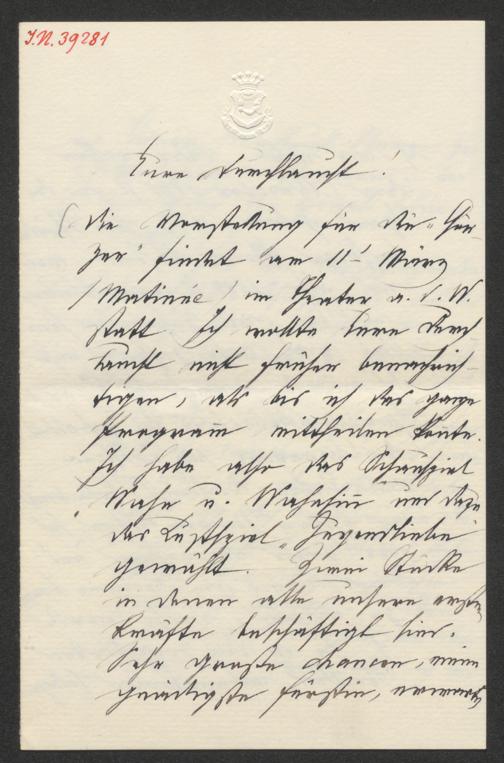 I.N. 39281
Eure Durchlaucht!
Die Vorstellung für die „Gör-
zer" findet am 11t März
/Matinée/ im Theater a. d. W.
statt Ich wollte Eure Durch-
laucht nicht früher benachrich-
tigen, als bis ich das ganze
Programm mittheilen könnte.
Ich habe also das Schauspiel
„Wahn u. Wahnsinn und dazu
das Lustspiel „Jugendliebe"
gewählt. Zwei Stücke
in denen alle unsere ersten
Kräfte beschäftigt sind.
Sehr große chancen, meine
gnädigste Fürstin,